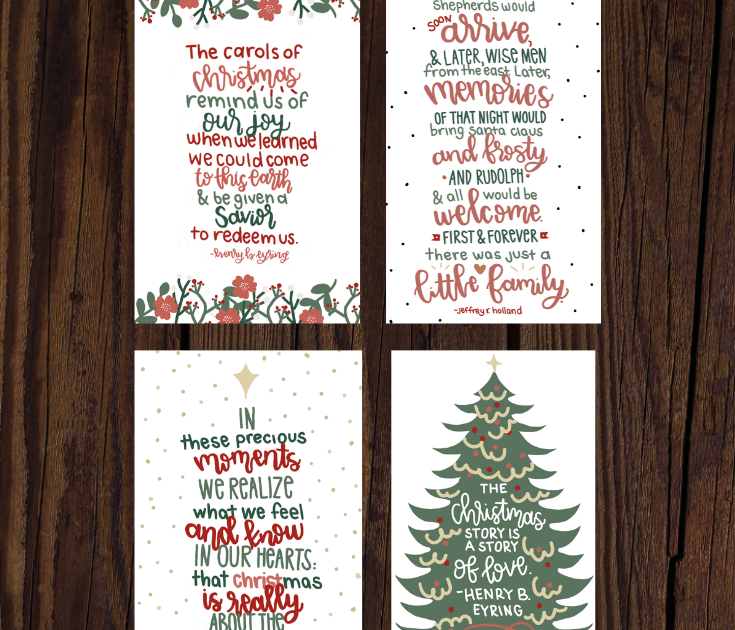 The carols of
christmas
remind us of
our joy
when we learned
we could come
to this earth
& be given a
Savior
to redeem us.
-henry b. eyring
Shepherds would
soon arrive,
& LATER, WISE MEN
from the east. Later,
memories
OF THAT NIGHT WOULD
bring santa claus
and frosty
AND RUDOLPH
& all would be
welcome.
FIRST & FOREVER
there was just a
little family.
-jeffrey r holland
IN
these precious
moments
WE REALIZE
what we feel
and know
IN OUR HEARTS:
that christmas
is really
ABOUT THE
THE
Christmas
STORY IS
A STORY
of love.
-HENRY B.
EYRING